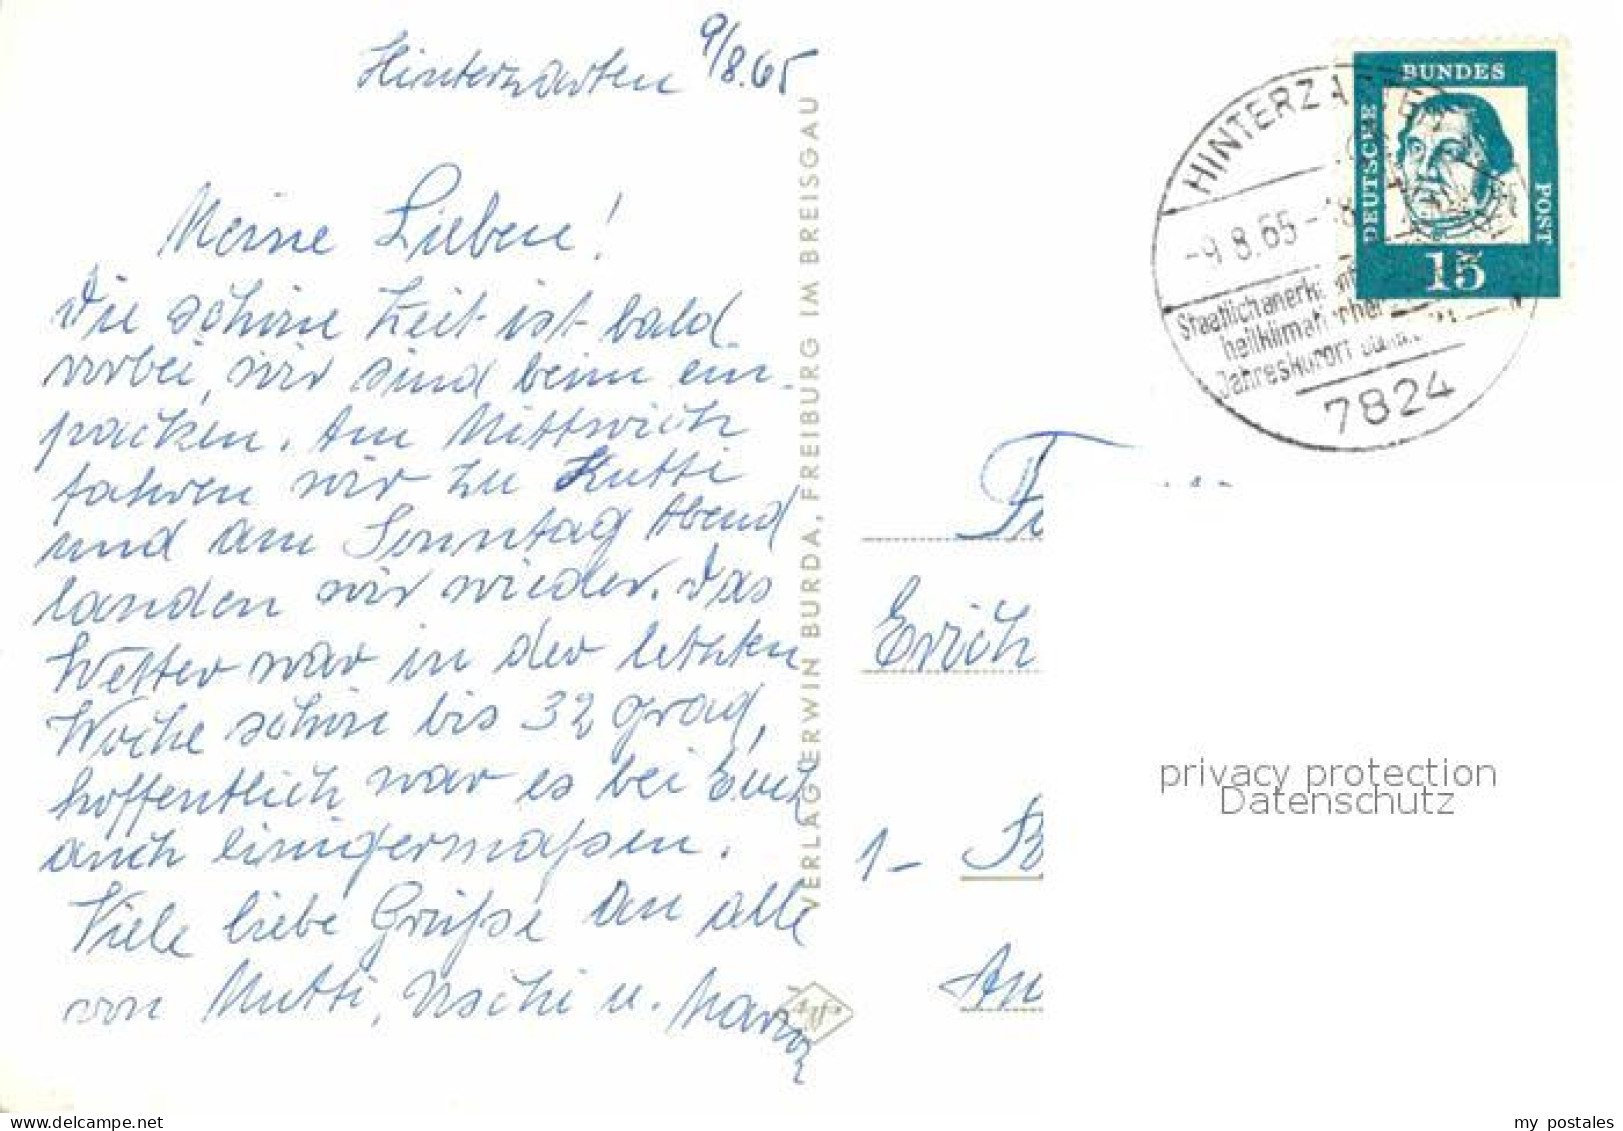 Hinterzarten 9/8.65
Meine Lieben!
Die schöne Zeit ist bald
vorbei, wir sind beim ein-
packen. Am Mittwoch
fahren wir zu Kutti
und am Sonntag Abend
landen wir wieder. Das
Wetter war in der letzten
Woche schön bis 32 grad,
hoffentlich war es bei Euch
auch einigermaßen.
Viele liebe Grüße an alle
von Mutti, Uschi u.
VERLAG ERWIN BURDA, FREIBURG IM BREISGAU
HINTERZARTEN
-9.8.65-18
Staatlich anerkannter
heilklimatischer
Jahreskurort
7824
DEUTSCHE
BUNDES
POST
15
Erich
1-
An
privacy protection
Datenschutz
my postales